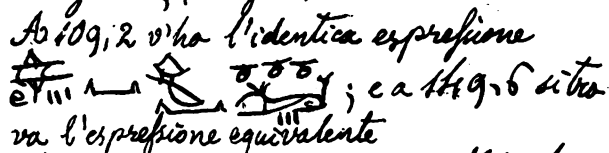 A 109,2 v'ha l'identica espressione
; e a 149,6 si tro-
va l'espressione equivalente